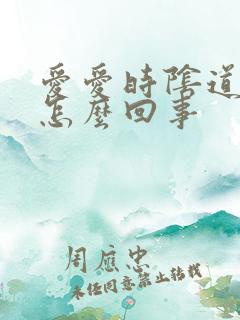 愛愛時陰道
怎麼回事
周應忠
未經同意禁止轉載